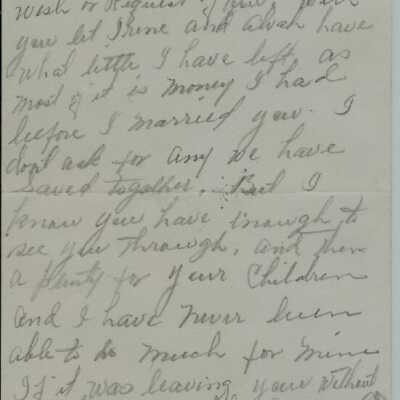 wish or Request
you let Irene and Avah have
what little I have left, as
most of it is money I had
beefore I married you. I
don't ask for any we have
saved together. But I
know you have inough to
see you through, and then
a plenty for your children
and I have never been
able to do much for mine
If it was leaving you without